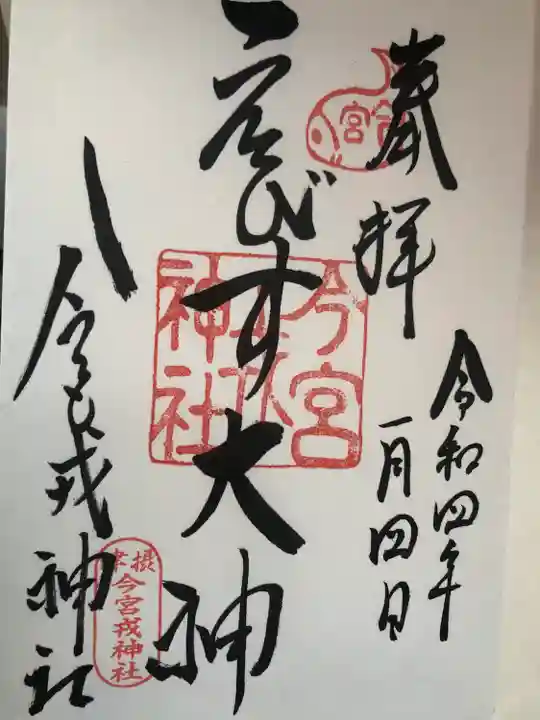 奉拝
令和四年
一月四日
ゑびす大神
今宮戎神社
今宮
今宮戎神社
摂津
今宮戎神社